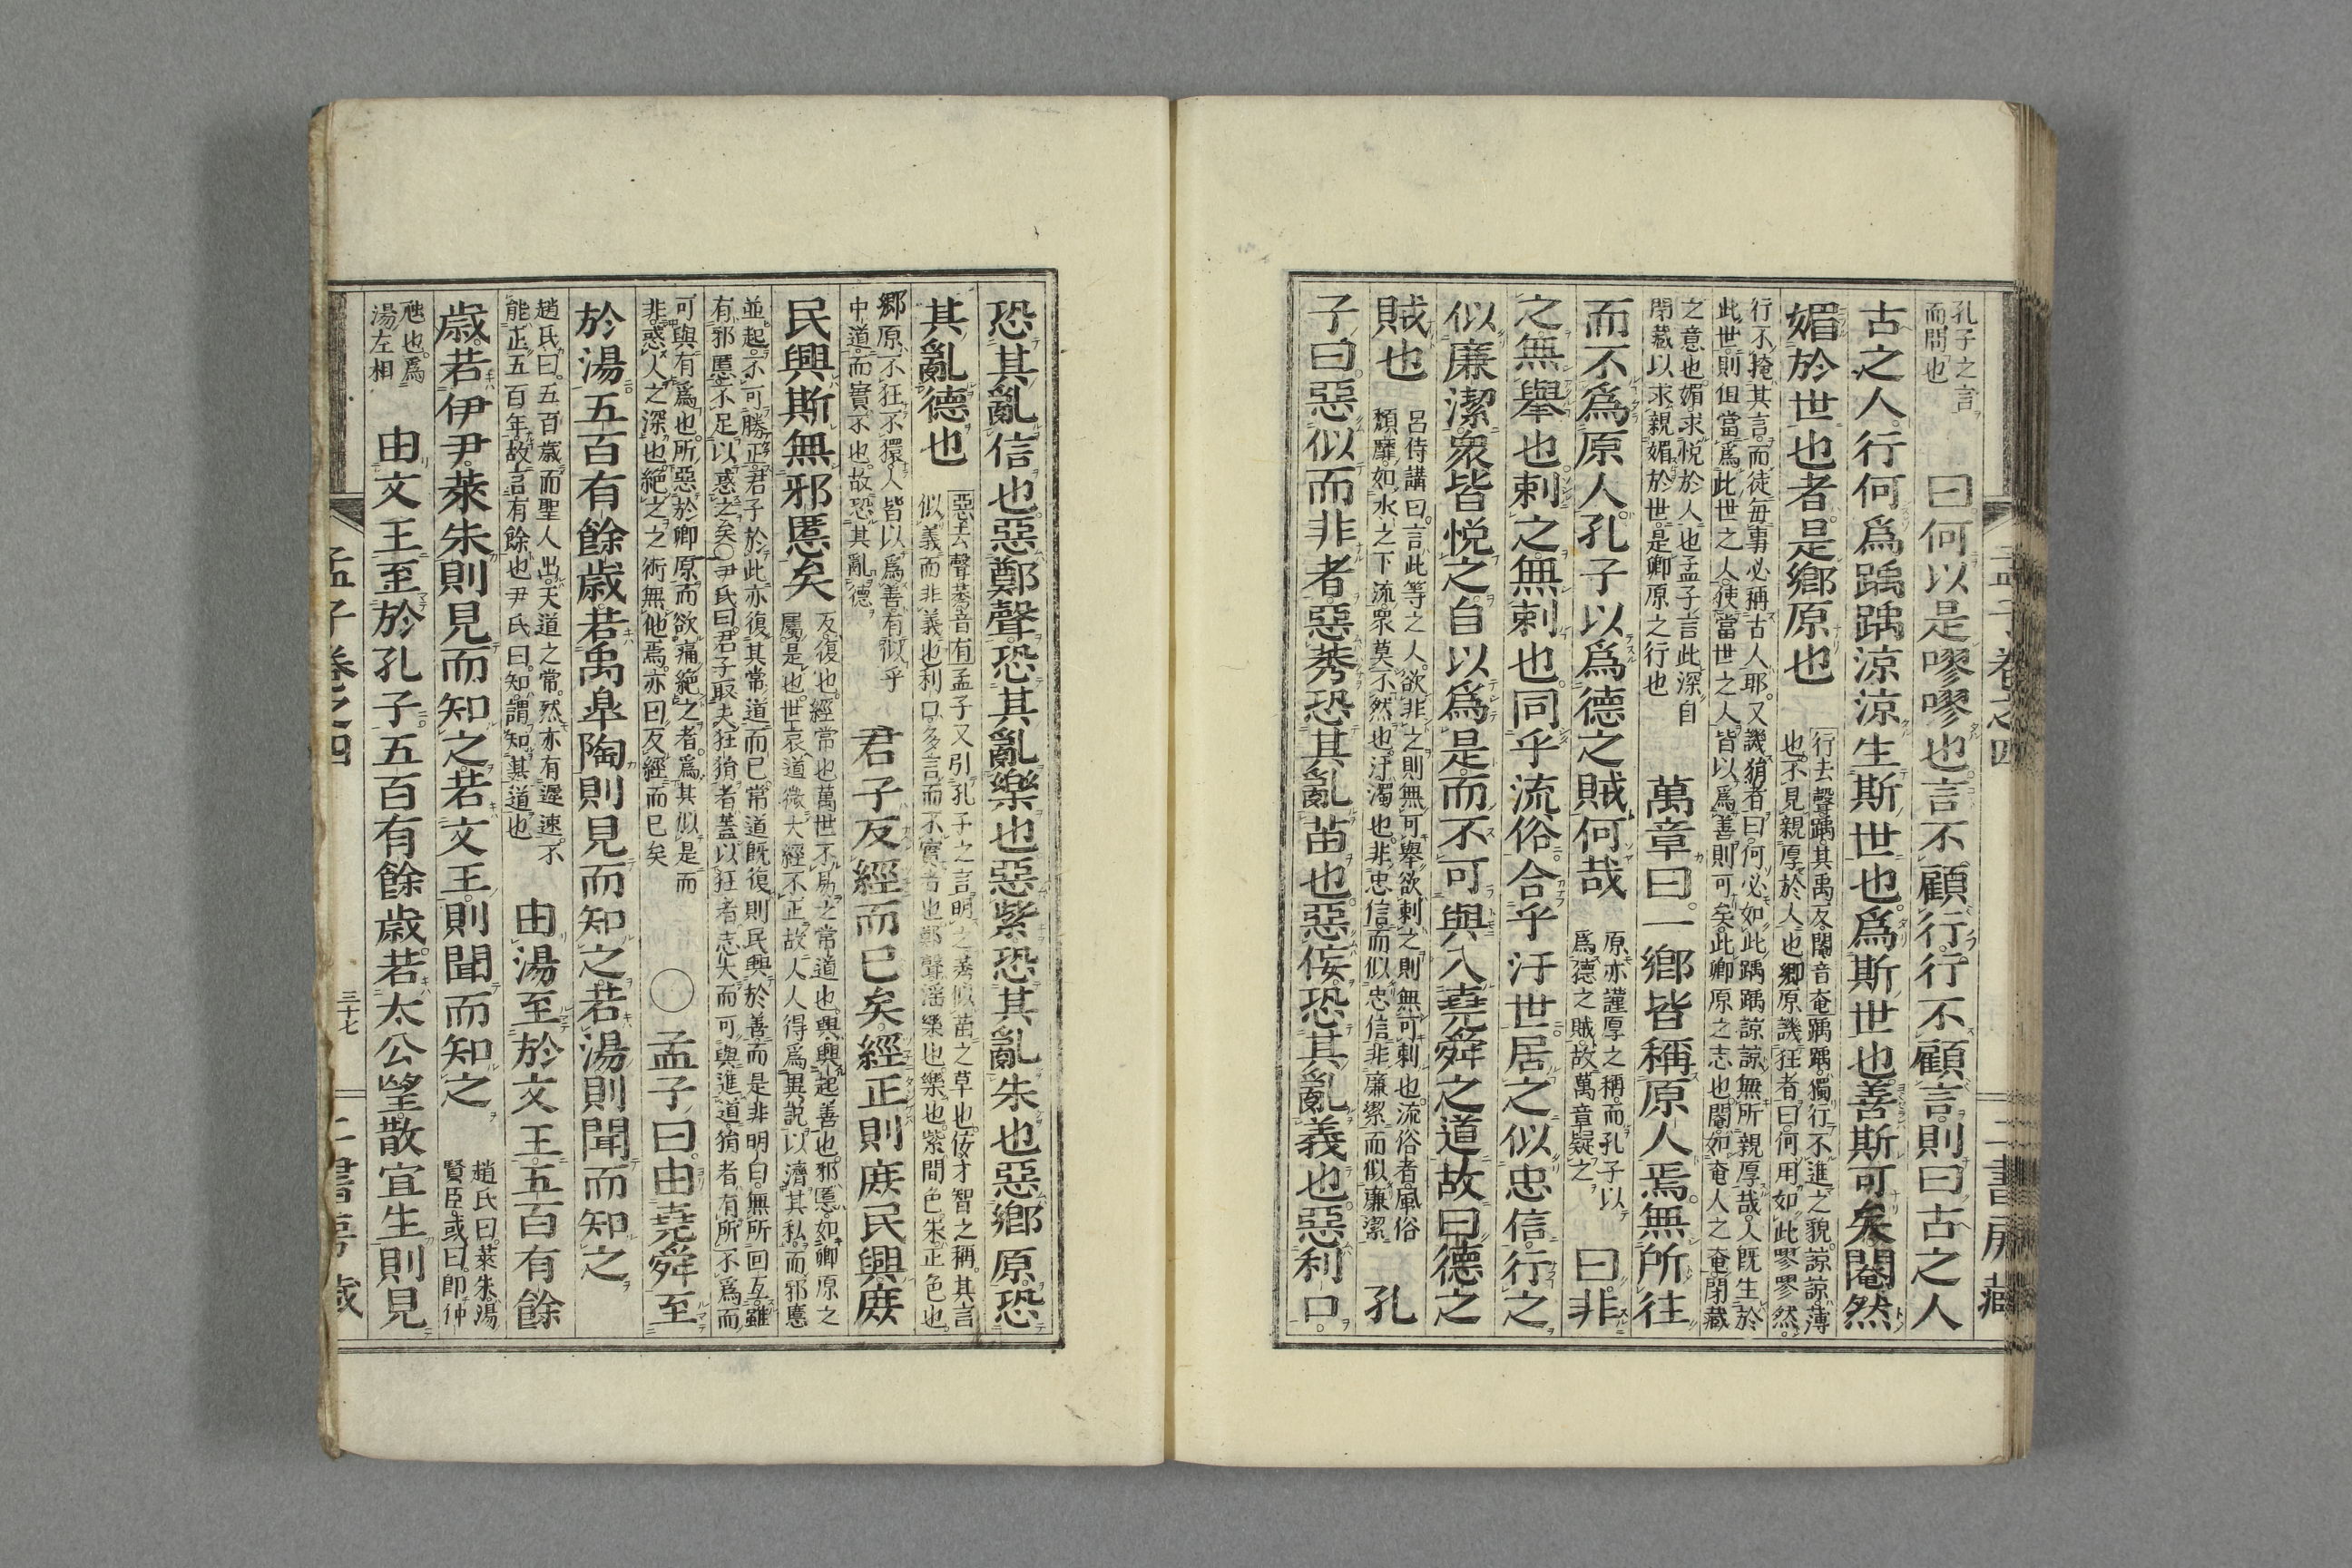 孔子之言
而問也
曰何以是嘐嘐也言不顧行行不顧言則曰古之人
古之人行何爲踽踽涼涼生斯世也爲斯世也善斯可矣閹然
媚於世也者是鄉原也
行去聲踽其禹反閹音奄踽踽獨行不進之貌諒諒薄
也不見親厚於人也鄉原譏狂者曰何用如此嘐嘐然
行不掩其言而徒每事必稱古人耶又譏狷者曰何必如此踽踽諒諒無所親厚哉人既生於
此世則但當爲此世之人使當世之人皆以爲善則可矣此鄉原之志也閹如奄人之奄閉藏
之意也媚求悦於人也孟子言此深自
閉藏以求親媚於世是鄉原之行也
萬章曰一鄉皆稱原人焉無所往
而不爲原人孔子以爲德之賊何哉
原亦謹厚之稱而孔子以
爲德之賊故萬章疑之
曰非
之無舉也刺之無刺也同乎流俗合乎汙世居之似忠信行之
似廉潔衆皆悦之自以爲是而不可與入堯舜之道故曰德之
賊也
呂侍講曰言此等之人欲非之則無可舉欲刺之則無可刺也流俗者風俗
頽靡如水之下流衆莫不然也汙濁也非忠信而似忠信非廉潔而似廉潔
孔
子曰惡似而非者惡莠恐其亂苗也惡佞恐其亂義也惡利口
孟子卷之四
二書房藏
恐其亂信也惡鄭聲恐其亂樂也惡紫恐其亂朱也惡鄉原恐
其亂德也
惡去聲莠音有孟子又引孔子之言明之莠似苗之草也佞才智之稱其言
似義而非義也利口多言而不實者也鄭聲淫樂也樂也紫間色朱正色也
鄉原不狂不獧人皆以爲善有似乎
中道而實不也故恐其亂德
君子反經而已矣經正則庶民興庶
民興斯無邪慝矣
反復也經常也萬世不易之常道也興興起善也邪慝如鄉原之
屬是也世衰道微大經不正故人人得爲異説以濟其私而邪慝
並起不可勝正君子於此亦復其常道而已常道既復則民興於善而是非明白無所回互雖
有邪慝不足以惑之矣○尹氏曰君子取夫狂狷者蓋以狂者志大而可與進道狷者有所不爲而
可與有爲也所惡於鄉原而欲痛絶之者爲其似是而
非惑人之深也絶之之術無他焉亦曰反經而已矣
○孟子曰由堯舜至
於湯五百有餘歳若禹臯陶則見而知之若湯則聞而知之
趙氏曰五百歳而聖人出天道之常然亦有遲速不
能正五百年故言有餘也尹氏曰知謂知其道也
由湯至於文王五百有餘
歳若伊尹萊朱則見而知之若文王則聞而知之
趙氏曰萊朱湯
賢臣或曰即仲
虺也爲
湯左相
由文王至於孔子五百有餘歳若太公望散宜生則見
孟子卷之四
三十七
二書房藏